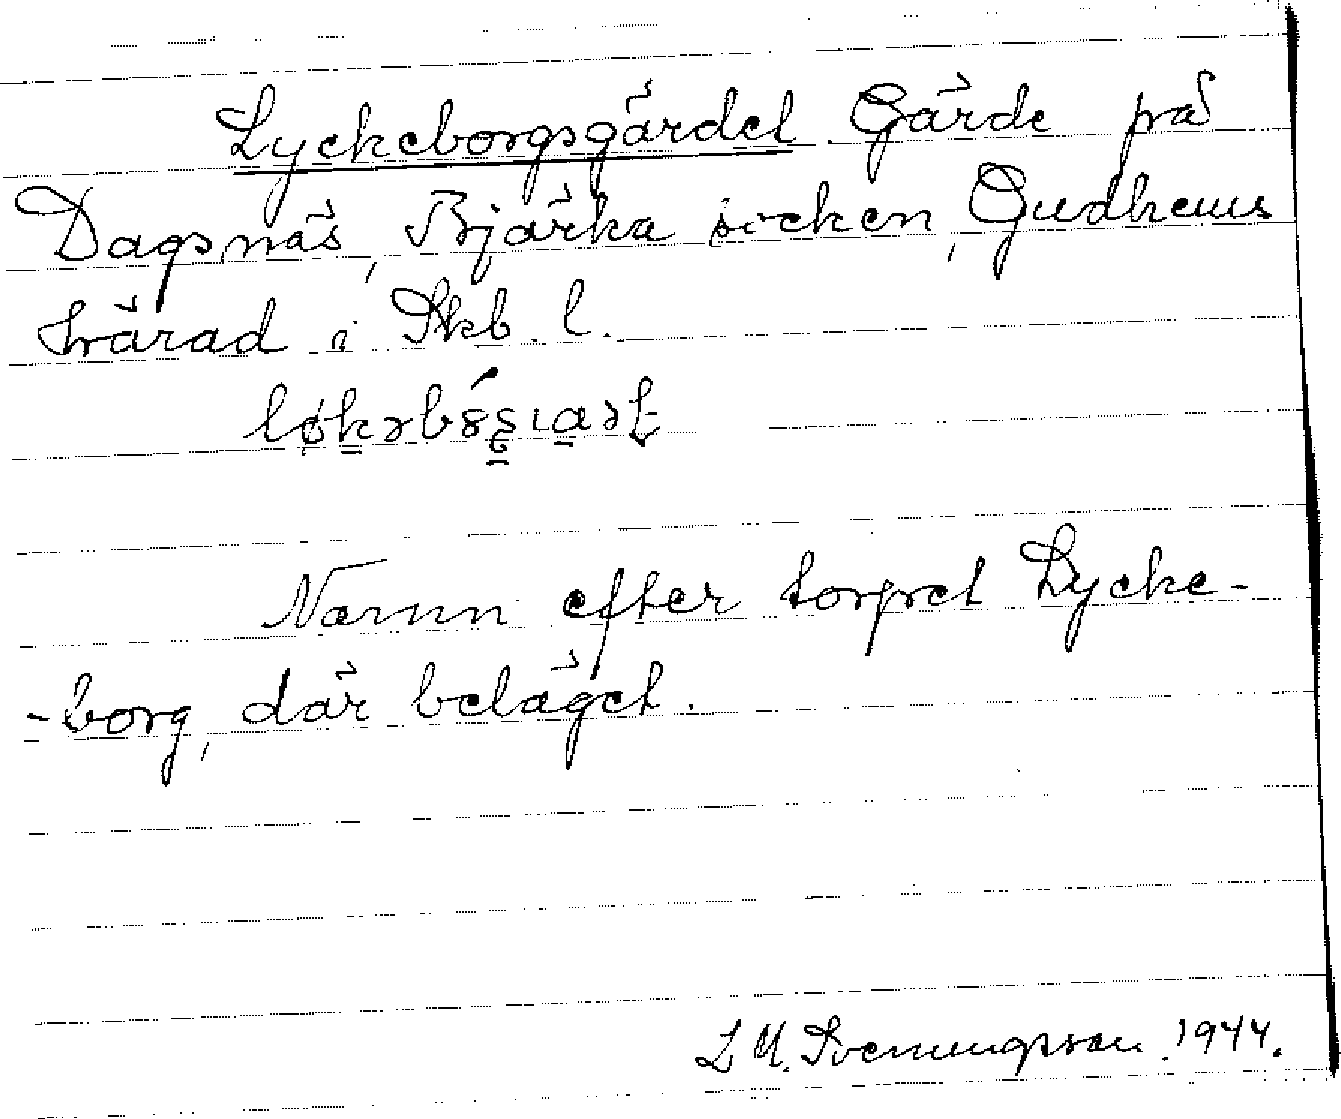 Lyckeborgsgärdet Gärde på
Dagsnäs, Bjärka socken, Gudhems
härad i Skb. l.
Namn efter torpet Lycke-
-borg, där beläget.
L M. Svenungsson 1944.